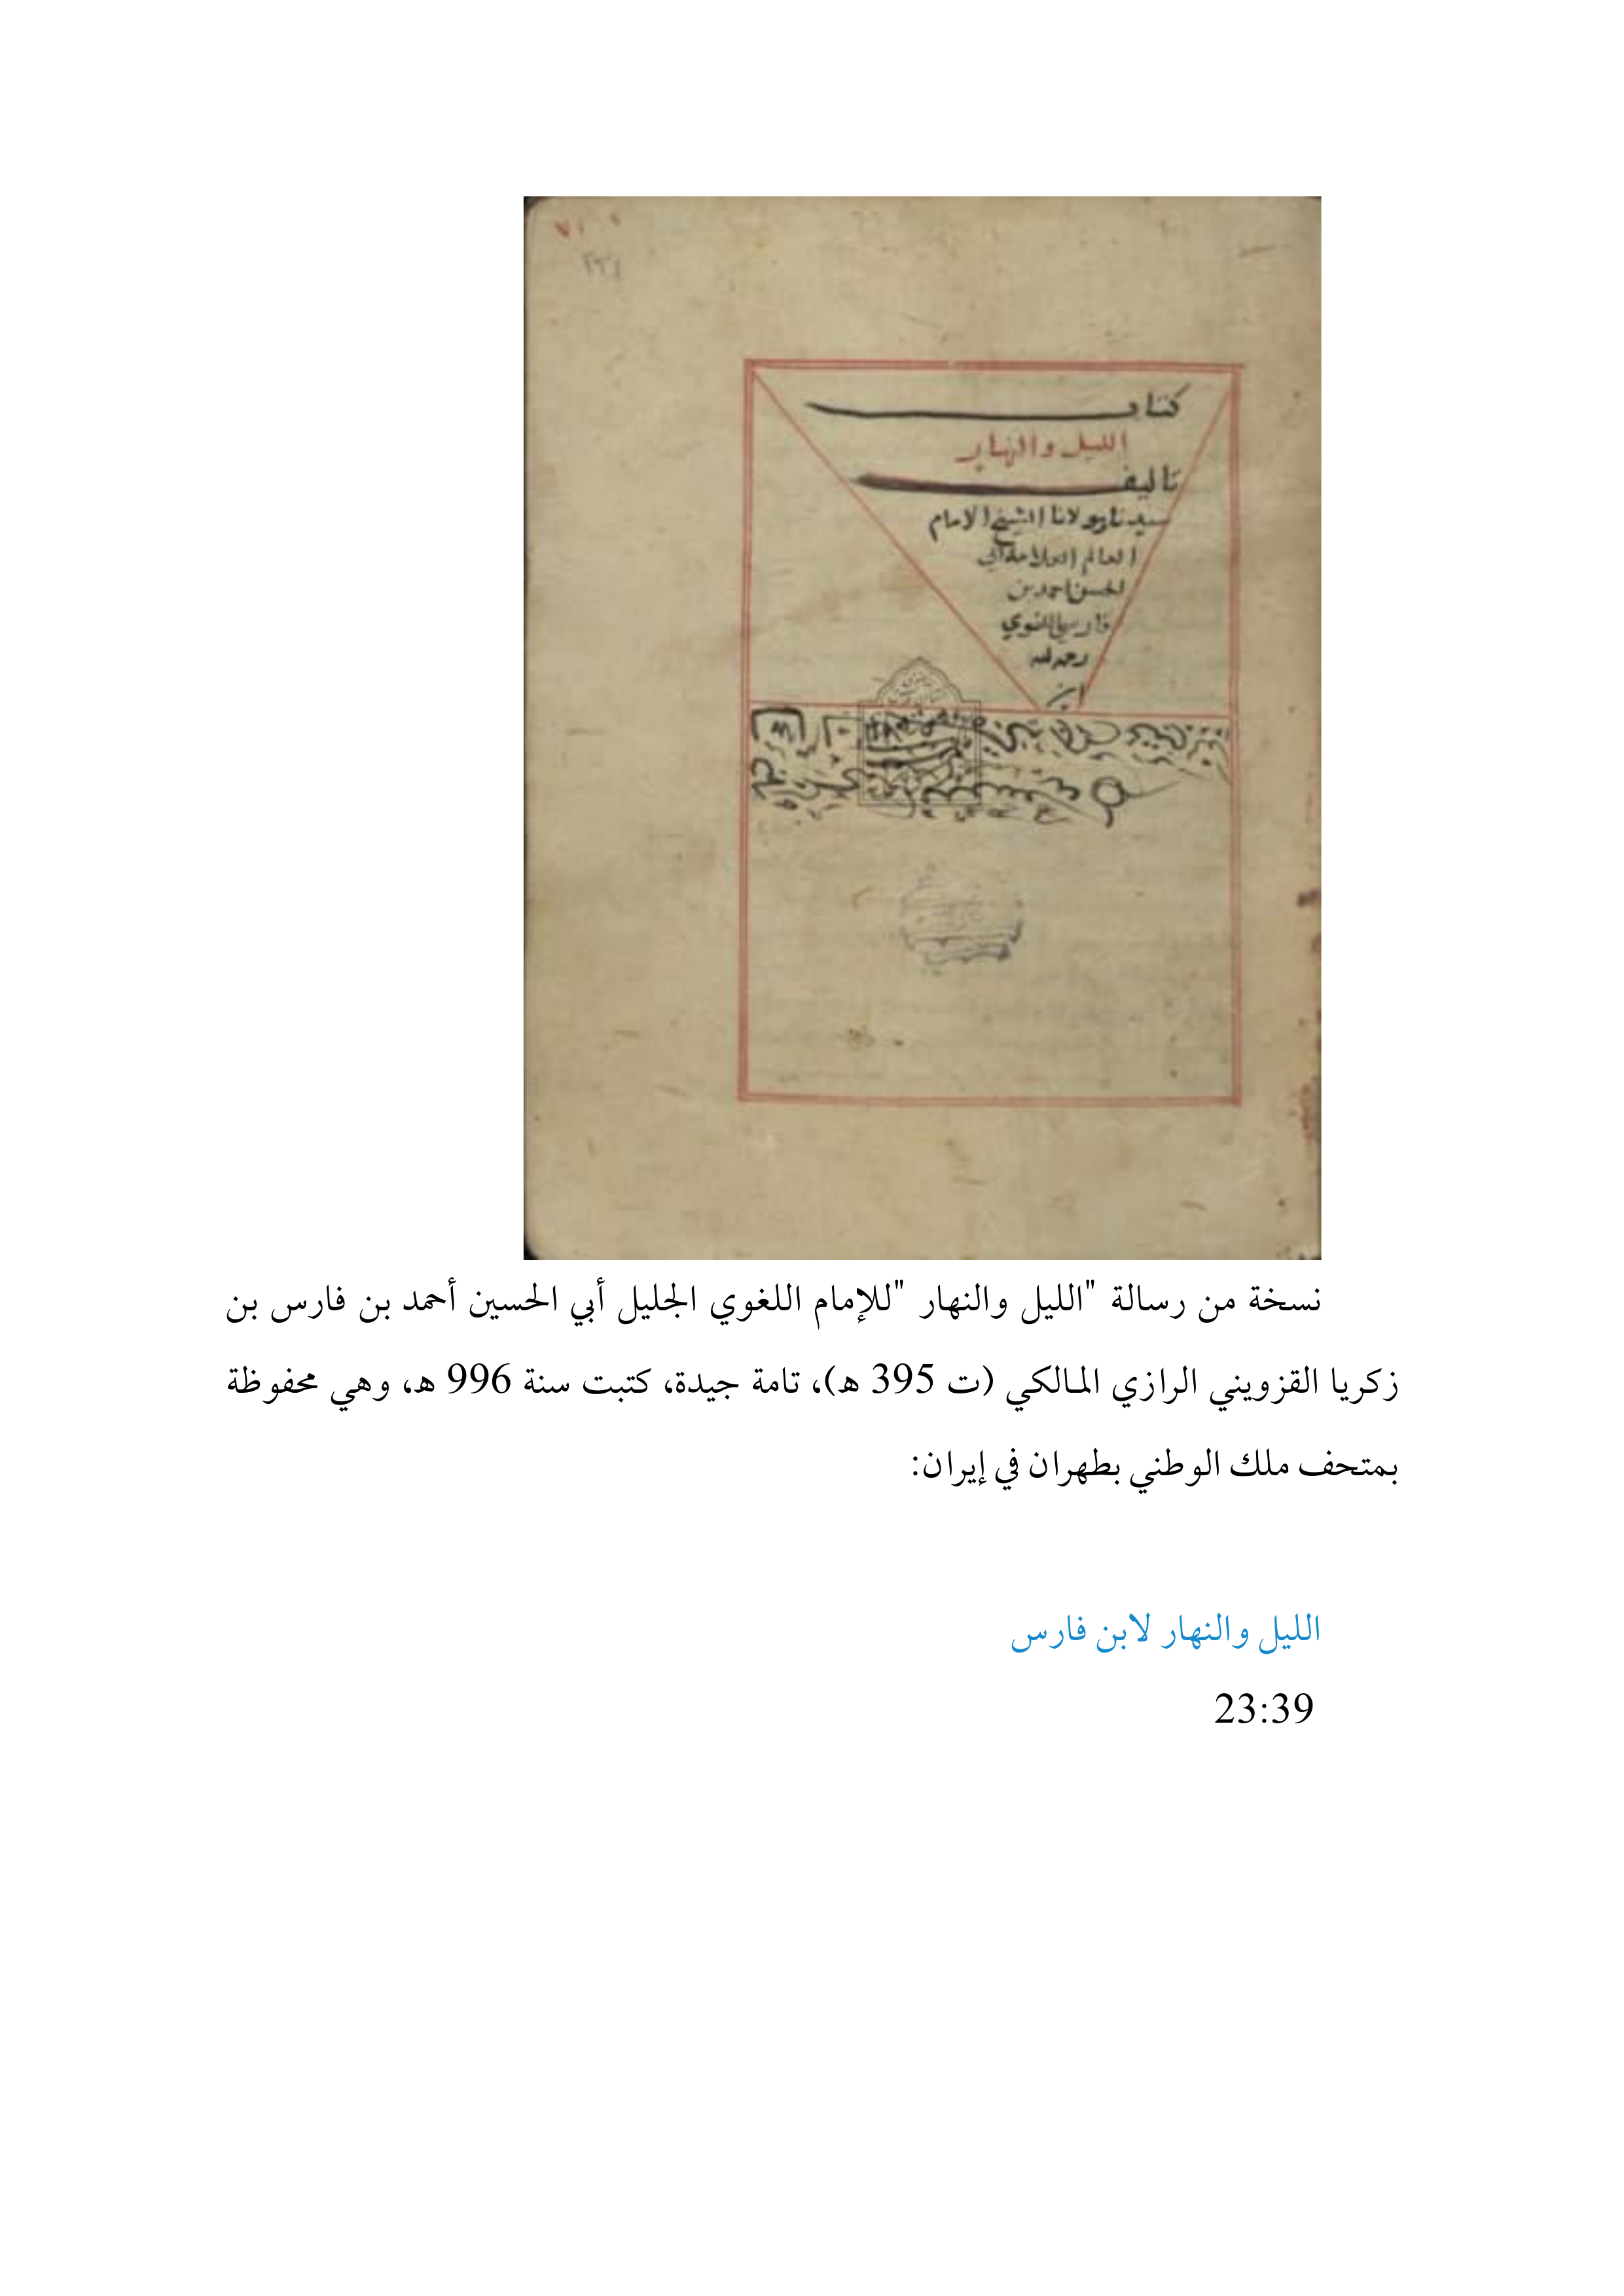 كتاب
الليل والنهار
تاليف
سيدنا ومولانا الشيخ الامام
العالم العلامة ابي
الحسن احمد بن
فارس اللغوي
رحمه الله
نسخة من رسالة "الليل والنهار "للإمام اللغوي الجليل أبي الحسين أحمد بن فارس بن
زكريا القزويني الرازي المالكي (ت 395 هـ)، تامة جيدة، كتبت سنة 996 هـ، وهي محفوظة
بمتحف ملك الوطني بطهران في إيران:
الليل والنهار لابن فارس
23:39